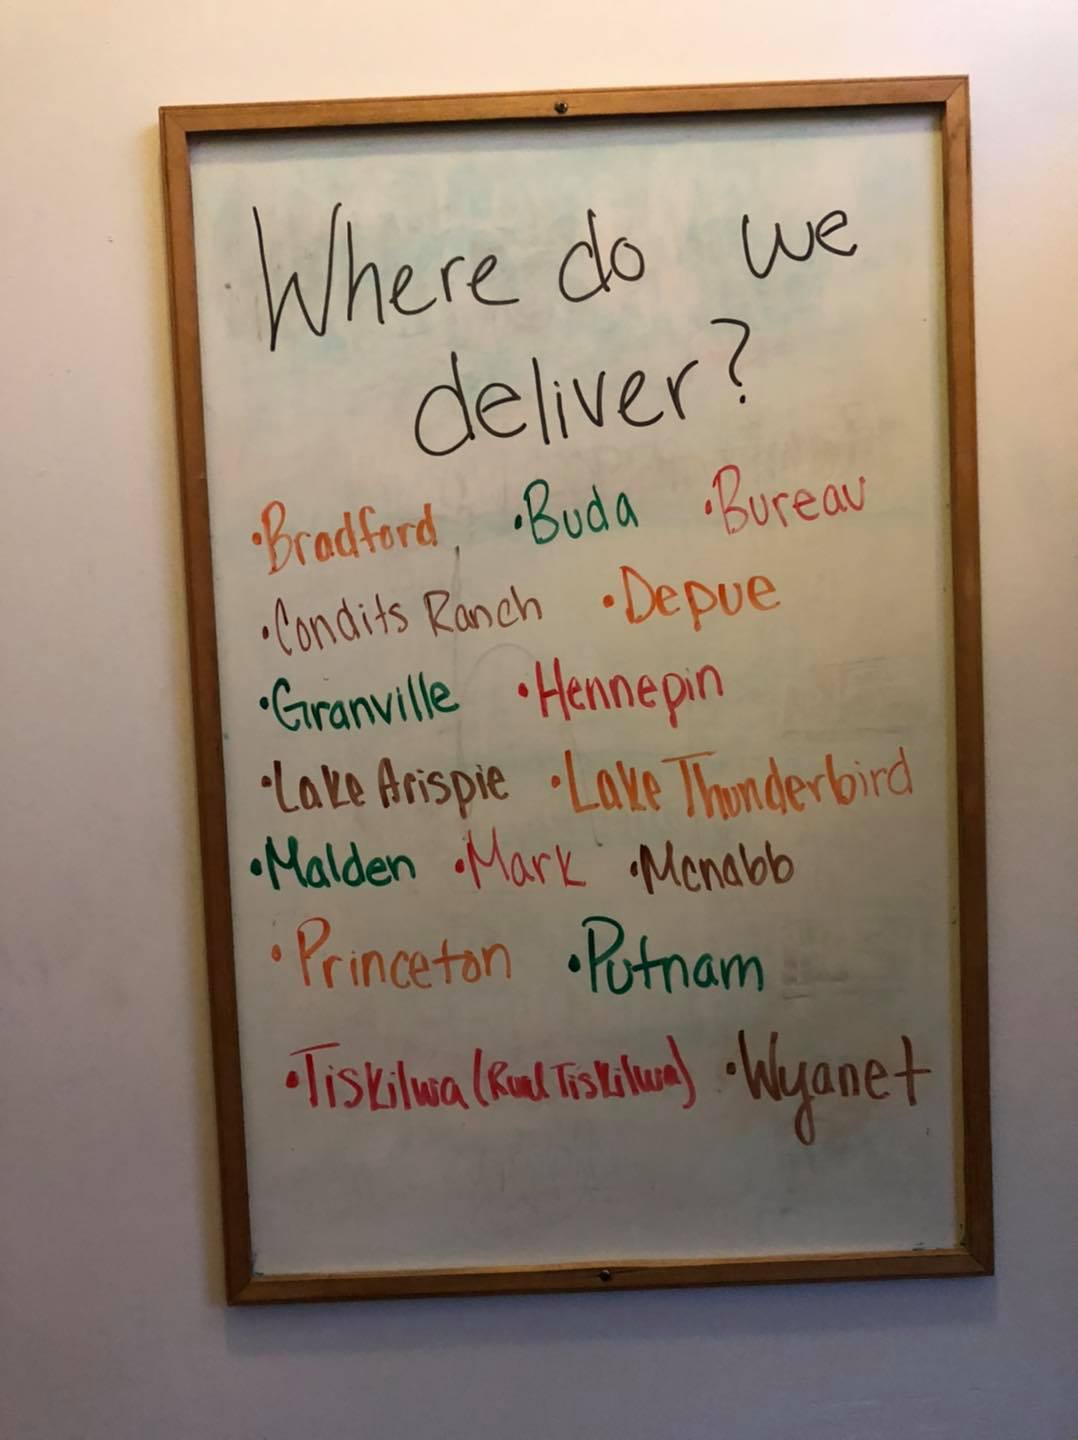 Where do we
deliver?
•Bradford •Buda •Bureau
•Condits Ranch •Depue
•Granville •Hennepin
•Lake Arispie •Lake Thunderbird
•Malden •Mark •Mcnabb
•Princeton •Putnam
•Tiskilwa (Rural Tiskilwa) •Wyanet